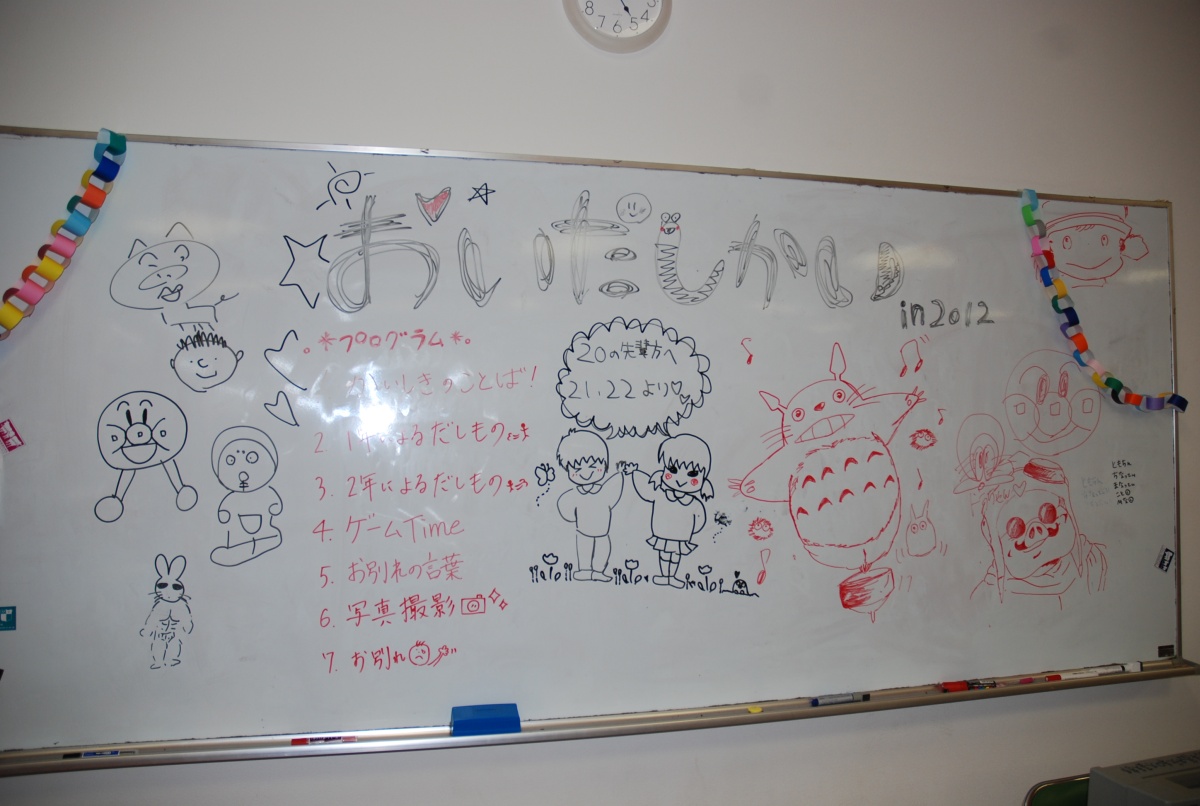 8 7 6 5 4
おいだしかい
in 2012
*プログラム*
かいしきのことば!
2 1年によるだしもの
3. 2年によるだしもの
4. ゲームTime
5. お別れの言葉
6. 写真撮影
7. お別れ
20の先輩方へ
21.22より♡